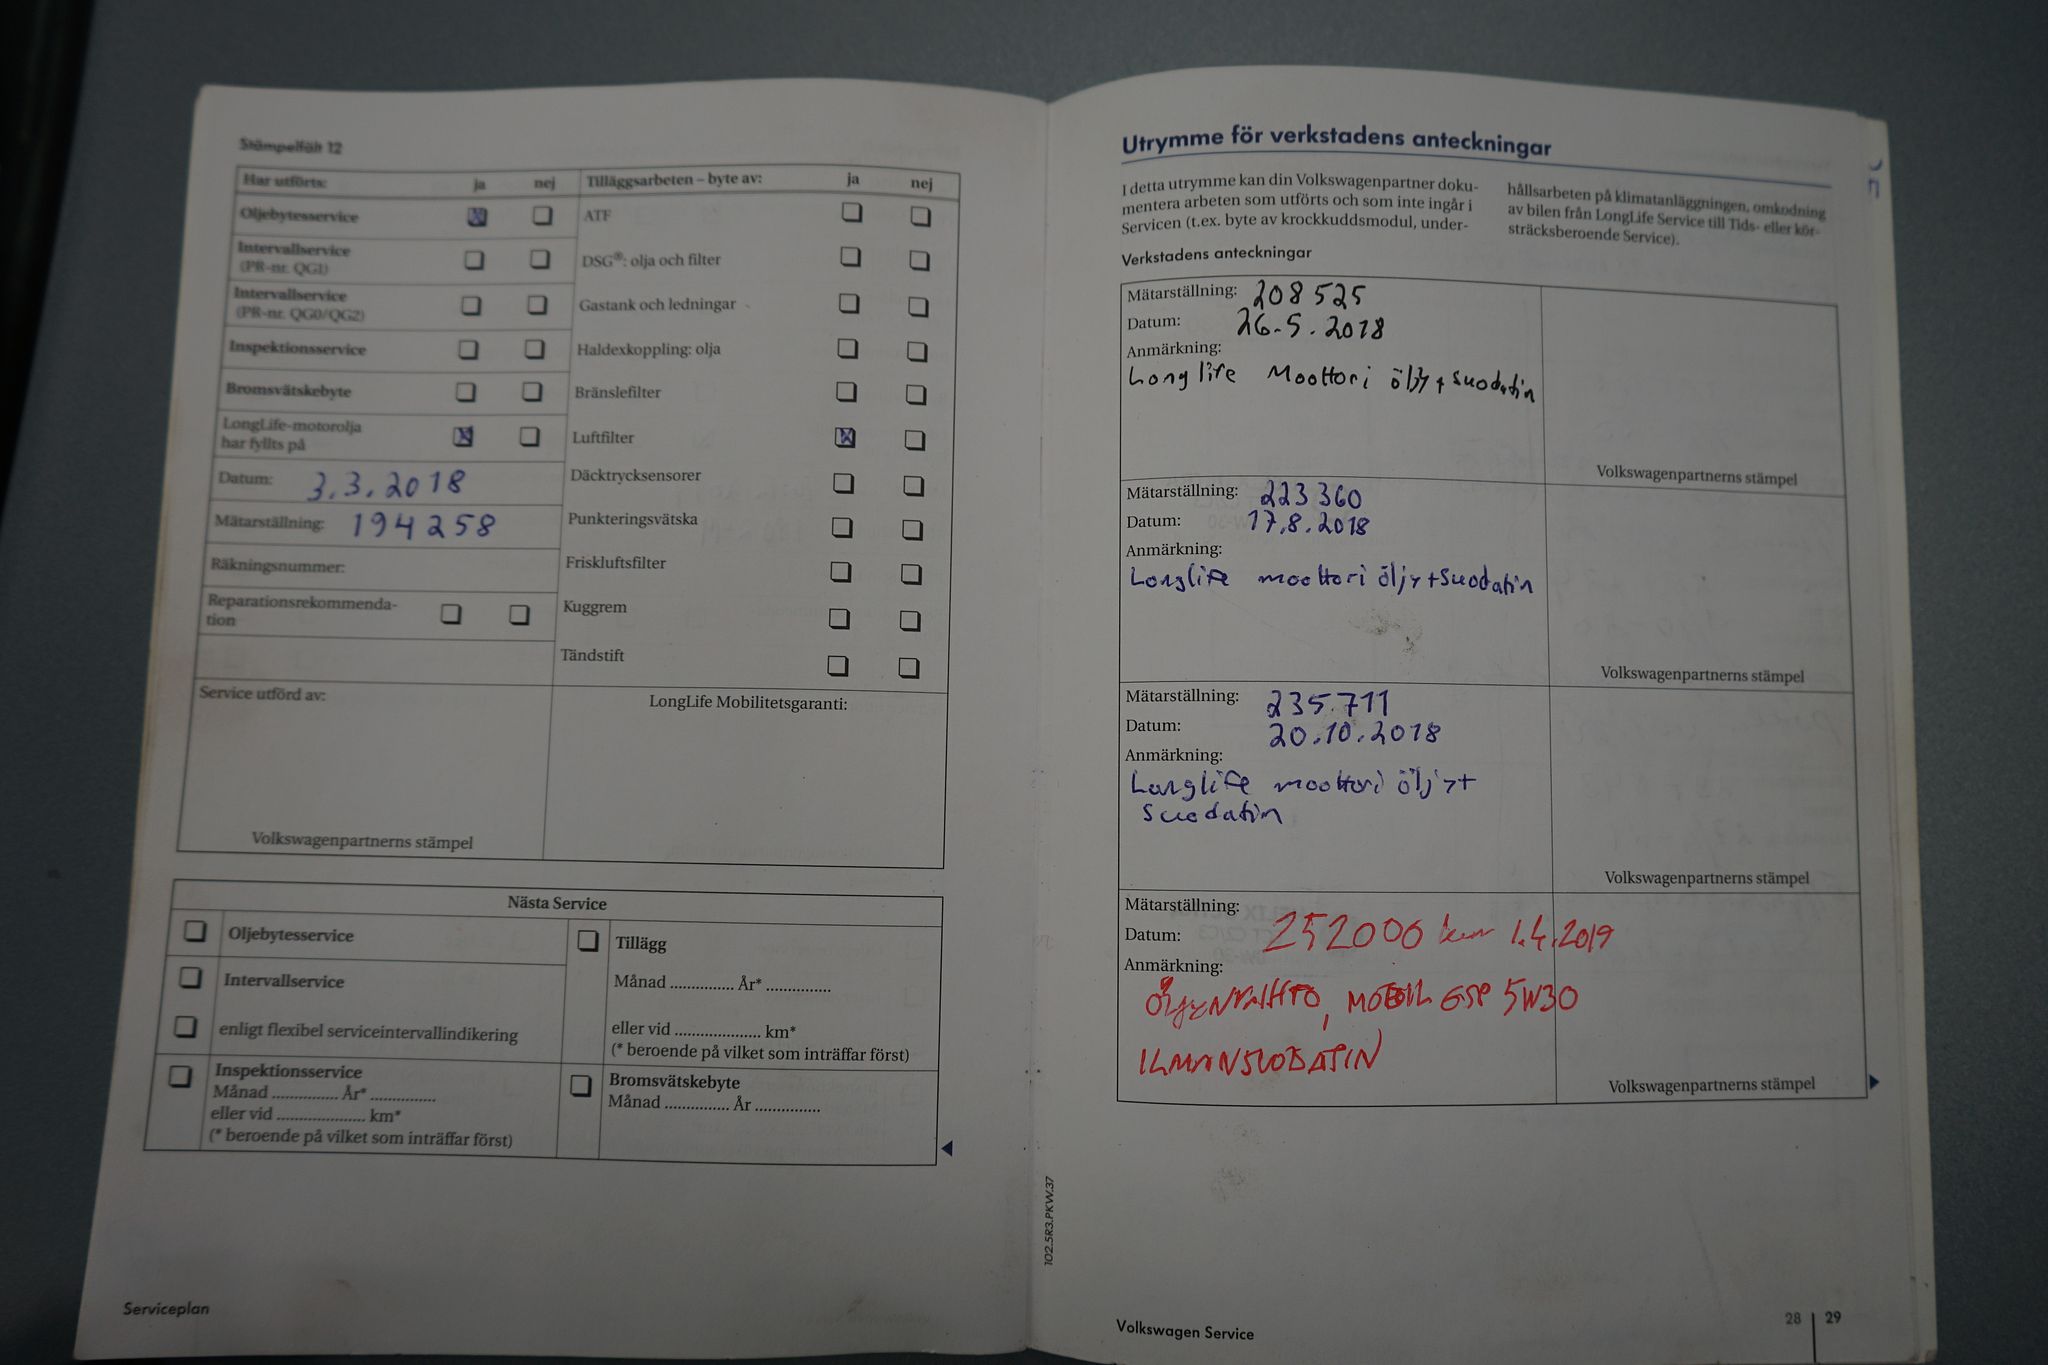 Stämpelfält 12
Har utförts: ja nej
Oljebytesservice
Intervallservice
(PR-nr. QG1)
Intervallservice
(PR-nr. QG0/QG2)
Inspektionsservice
Bromsvätskebyte
LongLife-motorolja
har fyllts på
Datum: 3.3.2018
Mätarställning: 194258
Räkningsnummer:
Reparationsrekommenda-
tion
Tilläggsarbeten – byte av: ja nej
ATF
DSG®: olja och filter
Gastank och ledningar
Haldexkoppling: olja
Bränslefilter
Luftfilter
Däcktrycksensorer
Punkteringsvätska
Friskluftsfilter
Kuggrem
Tändstift
Service utförd av:
Volkswagenpartnerns stämpel
LongLife Mobilitetsgaranti:
Nästa Service
Oljebytesservice
Intervallservice
enligt flexibel serviceintervallindikering
Inspektionsservice
Månad ............... År* ...............
eller vid .................... km*
(* beroende på vilket som inträffar först)
Tillägg
Månad ............... År* ...............
eller vid .................... km*
(* beroende på vilket som inträffar först)
Bromsvätskebyte
Månad ............... År ...............
Serviceplan
102.5R3.PKW.37
Utrymme för verkstadens anteckningar
I detta utrymme kan din Volkswagenpartner doku-
mentera arbeten som utförts och som inte ingår i
Servicen (t.ex. byte av krockkuddsmodul, under-
hållsarbeten på klimatanläggningen, omkodning
av bilen från LongLife Service till Tids- eller kör-
sträcksberoende Service).
Verkstadens anteckningar
Mätarställning: 208525
Datum: 26.5.2018
Anmärkning:
Longlife Moottori öljy+suodatin
Volkswagenpartnerns stämpel
Mätarställning: 223360
Datum: 17.8.2018
Anmärkning:
Longlife moottori öljy+suodatin
Volkswagenpartnerns stämpel
Mätarställning: 235.711
Datum: 20.10.2018
Anmärkning:
Longlife moottori öljy+
suodatin
Volkswagenpartnerns stämpel
Mätarställning:
Datum: 252000 km 1.4.2019
Anmärkning:
ÖLJYNVAIHTO, MOBIL ESP 5W30
ILMANSUODATIN
Volkswagenpartnerns stämpel
Volkswagen Service
28 29